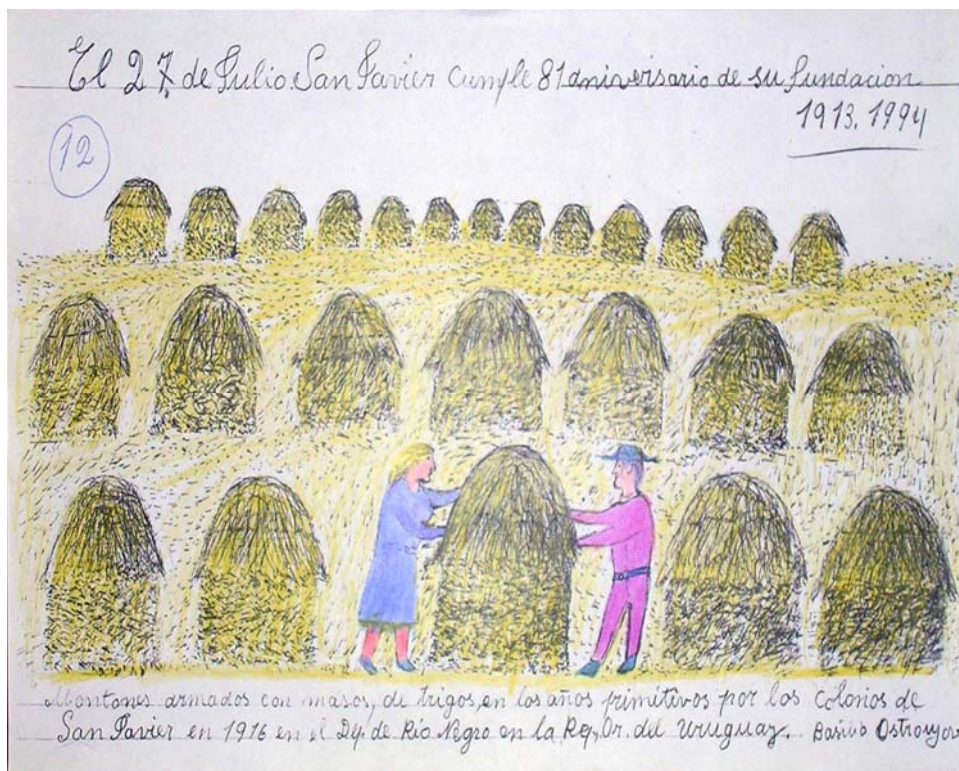 El 27 de Julio San Javier Cumple 81 aniversario de su fundacion
1913. 1994
12
Montones armados con masos, de trigos, en los años primitivos por los colonos de
San Javier en 1916 en el Dep. de Río Negro en la Rep. Or. del Uruguay. Basilio